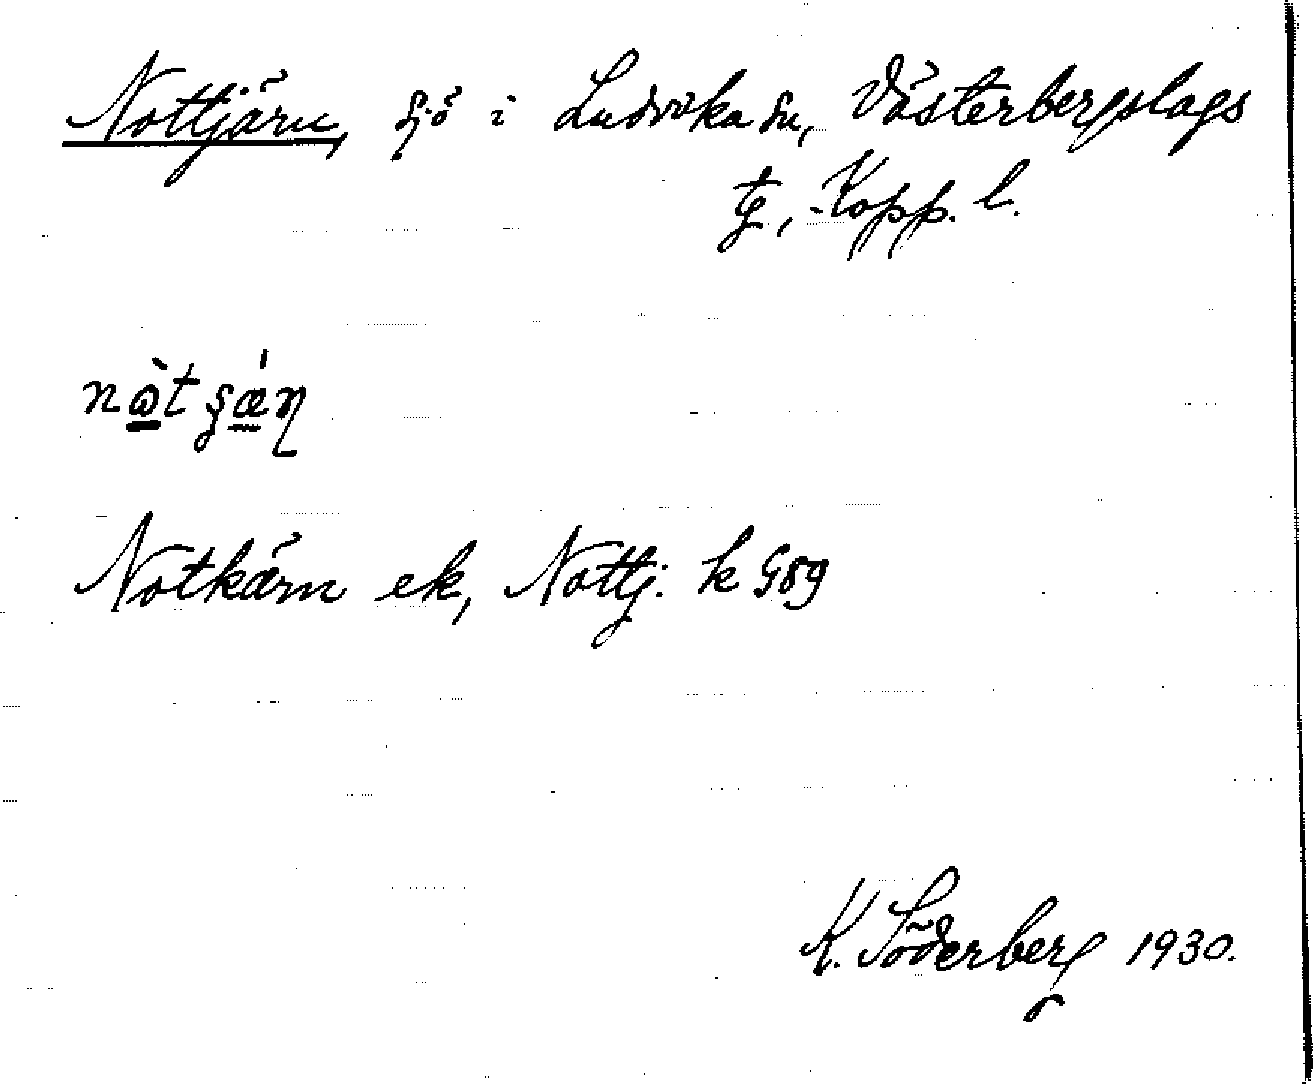 Nottjärn, sjö i Ludvika sn, Västerbergslags
tg, Kopp. l.
Notkärn ek, Nottj. k G89
K. Söderberg 1930.